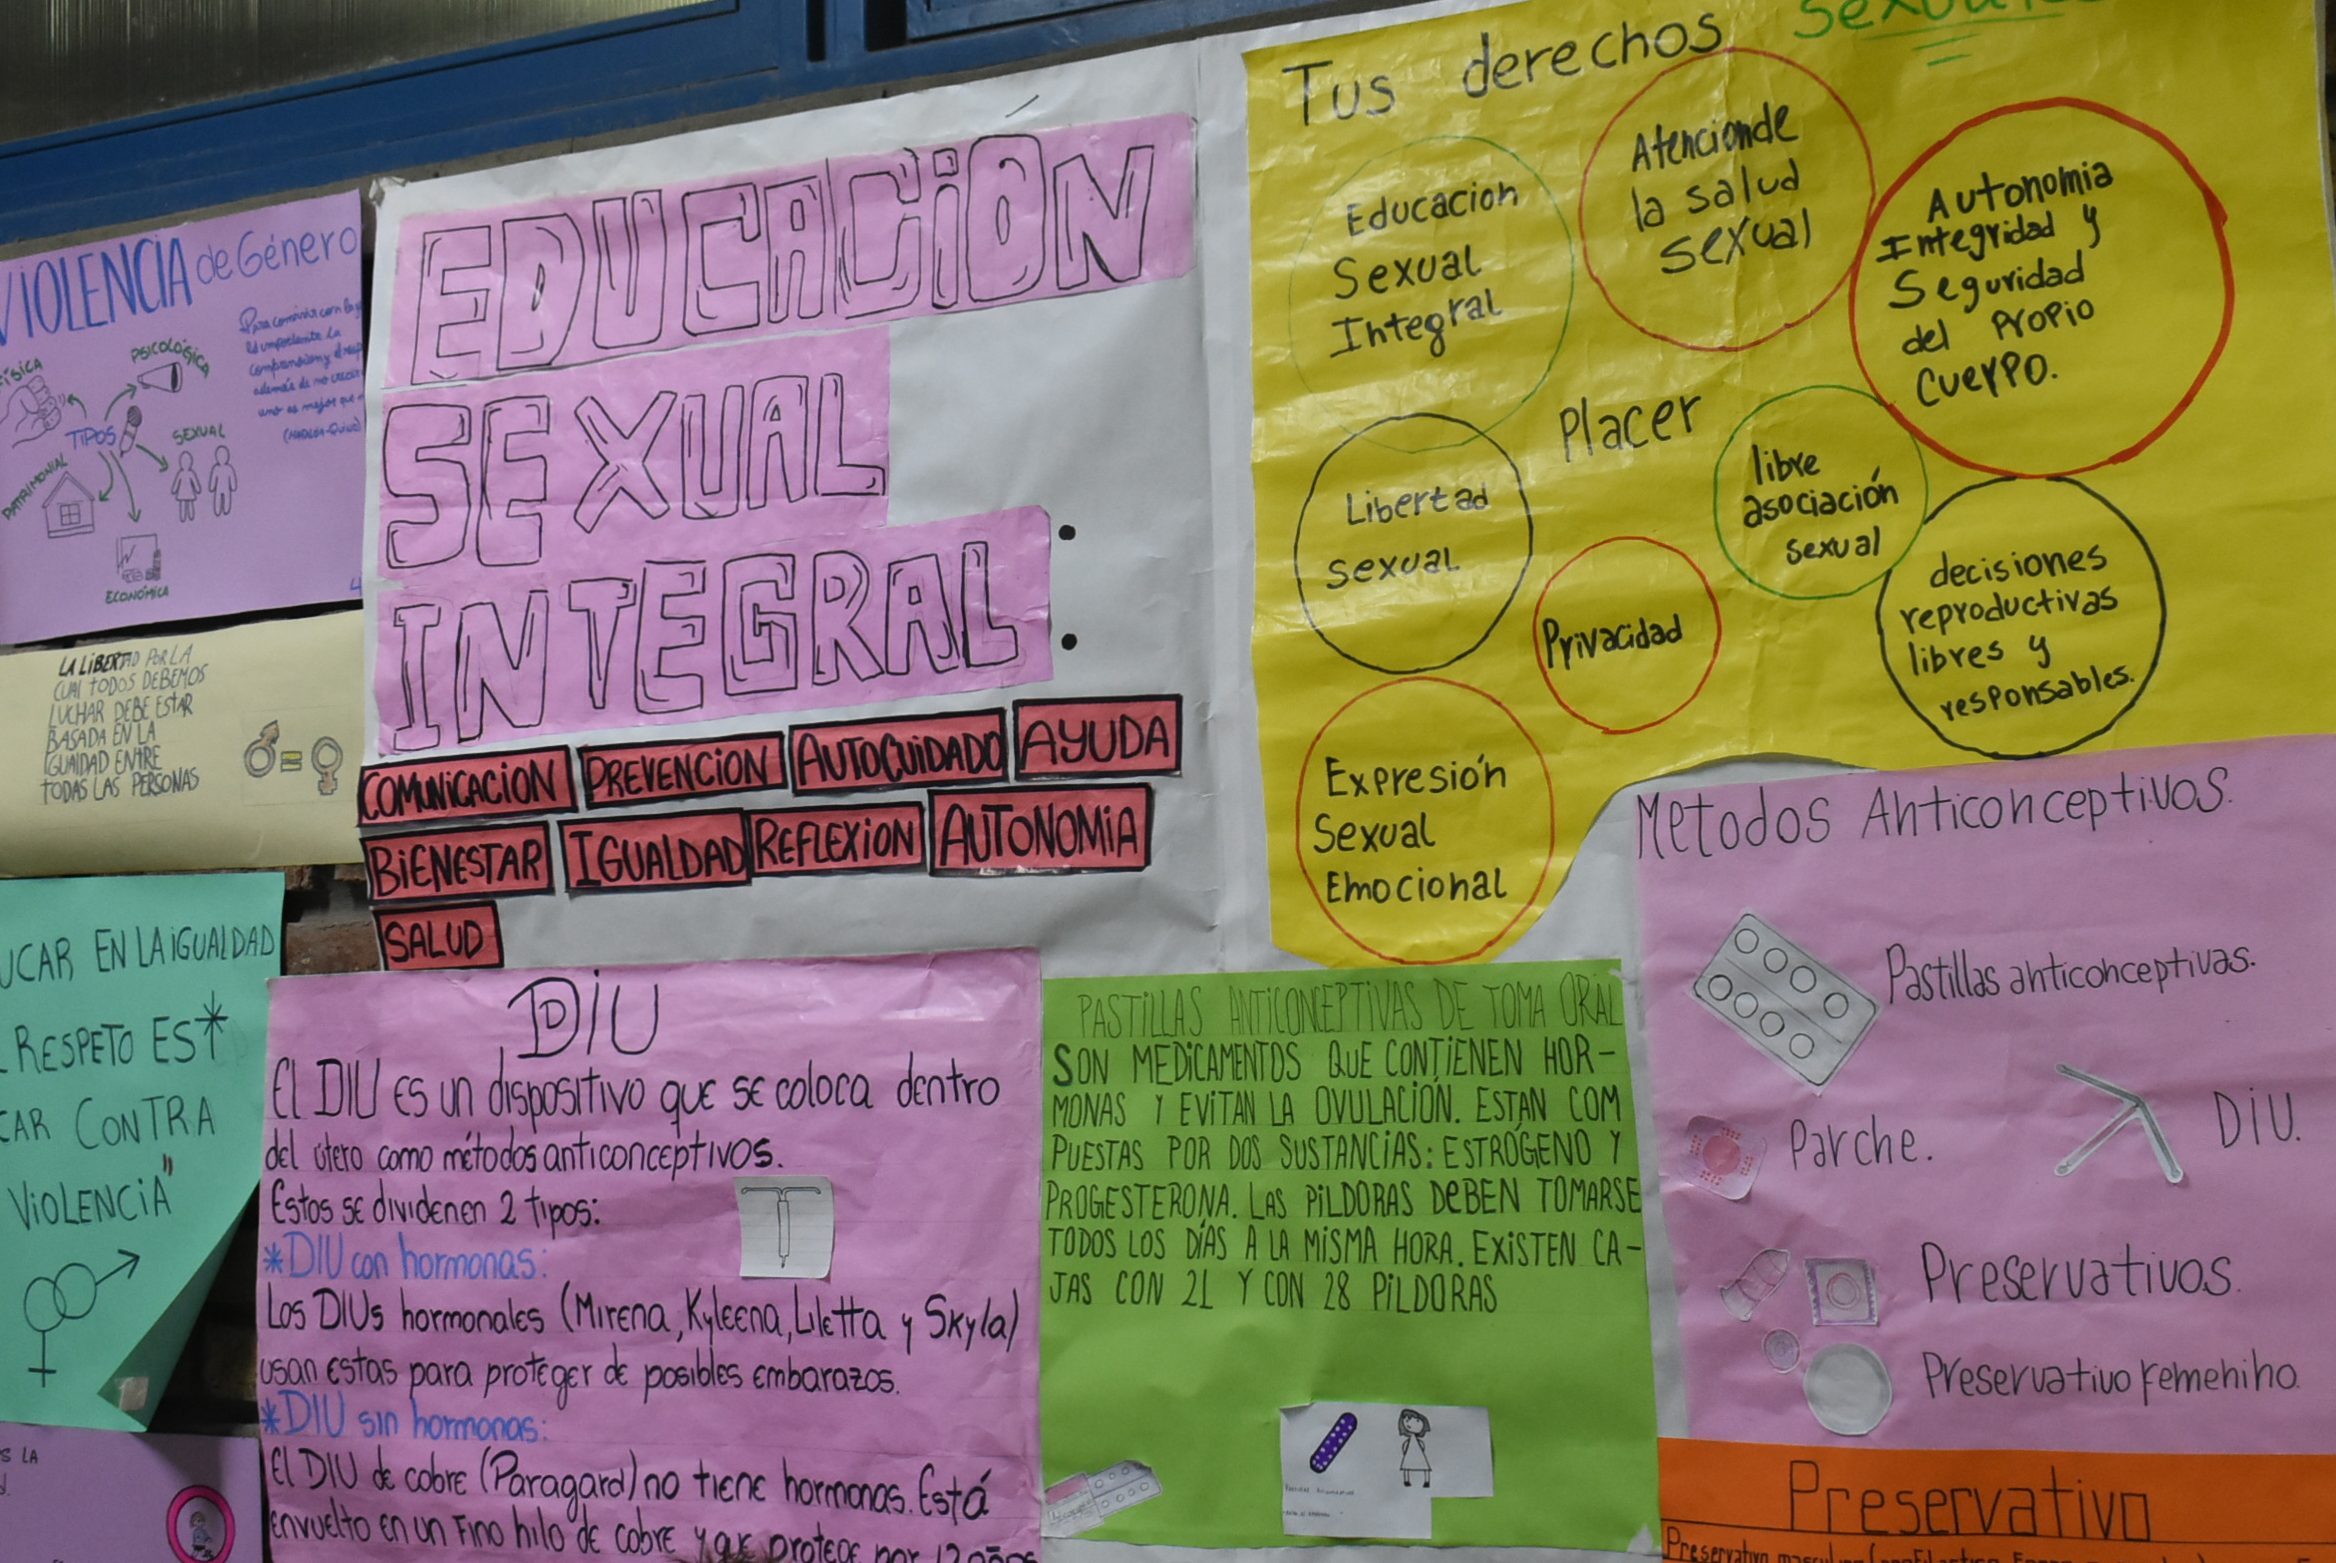 VIOLENCIA de Género
Para convivir con la
es importante la
comprension y el
además de no
uno es mejor que
FÍSICA
PSICOLÓGICA
TIPOS
SEXUAL
PATRIMONIAL
ECONÓMICA
LA LIBERTAD POR LA
CUAL TODOS DEBEMOS
LUCHAR DEBE ESTAR
BASADA EN LA
IGUALDAD ENTRE
TODAS LAS PERSONAS
=
UCAR EN LA iGUALDAD
RESPETO ES*
CAR CONTRA
VIOLENCIA"
S LA
EDUCACIÓN
SEXUAL
INTEGRAL :
COMUNICACION PREVENCION AUTOCUIDADO AYUDA
BIENESTAR IGUALDAD REFLEXION AUTONOMIA
SALUD
Tus derechos Sexuales
Educacion
Sexual
Integral
Atencionde
la salud
sexual
Autonomia
Integridad y
Seguridad
del propio
cuerpo.
Placer
Libertad
sexual
libre
asociación
sexual
Privacidad
decisiones
reproductivas
libres y
responsables.
Expresión
Sexual
Emocional
DIU
El DIU es un dispositivo que se coloca dentro
del útero como métodos anticonceptivos.
Estos se dividenen 2 tipos:
*DIU con hormonas:
Los DIUs hormonales (Mirena, Kyleena, Liletta y Skyla)
usan estas para proteger de posibles embarazos.
*DIU sin hormonas:
El DIU de cobre (Paragard) no tiene hormonas. Está
envuelto en un fino hilo de cobre y que protege por 12 años
PASTILLAS ANTICONCEPTIVAS DE TOMA ORAL
SON MEDICAMENTOS QUE CONTIENEN HOR-
MONAS Y EVITAN LA OVULACIÓN. ESTAN COM
PUESTAS POR DOS SUSTANCIAS: ESTRÓGENO Y
PROGESTERONA. LAS PILDORAS DEBEN TOMARSE
TODOS LOS DÍAS A LA MISMA HORA. EXISTEN CA-
JAS CON 21 Y CON 28 PILDORAS
Metodos Anticonceptivos.
Pastillas anticonceptivas.
Parche.
DIU.
Preservativos.
Preservativo femenino.
Preservativo
Preservativo masculino